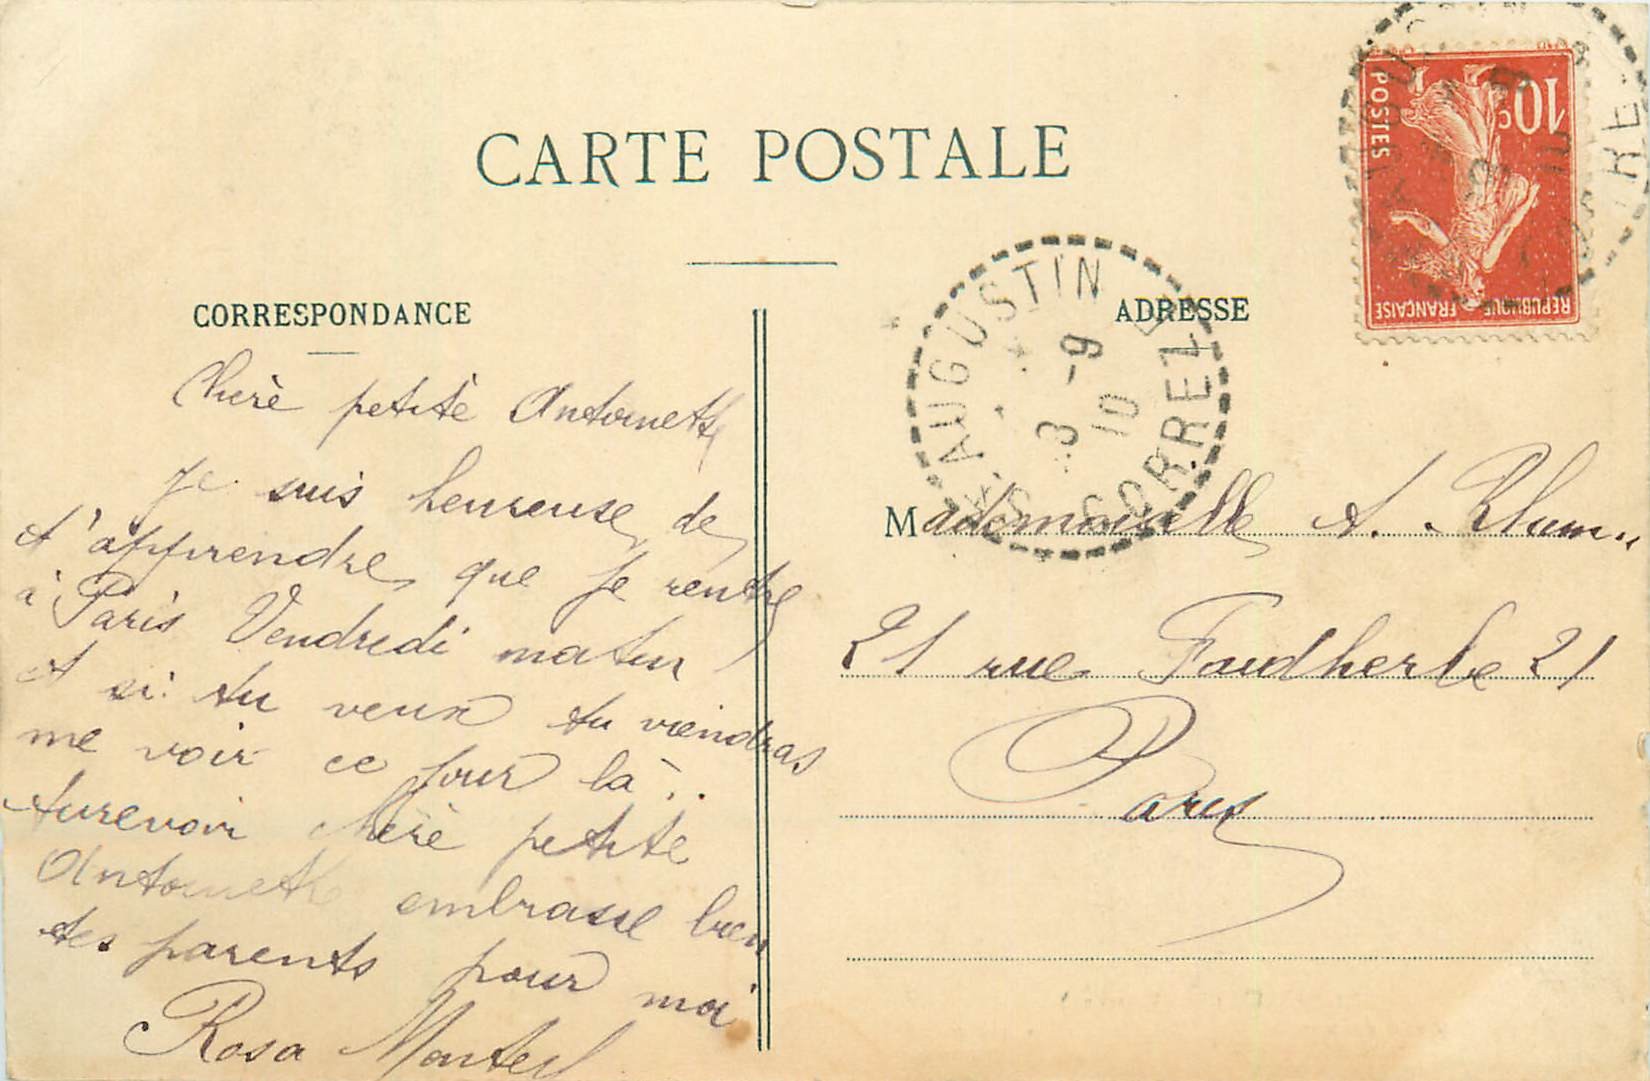 CARTE POSTALE
CORRESPONDANCE
Chère petite Antoinette
Je suis heureuse de
t'apprendre que je rentre
à Paris Vendredi matin
et si tu veux tu viendras
me voir ce jour là.
Aurevoir chère petite
Antoinette embrasse bien
tes parents pour moi
Rosa Monteil
ADRESSE
Mademoiselle A. Blum
21 rue Faudherbe 21
Paris
ST AUGUSTIN
3 -9
10
CORREZE
10c
POSTES
REPUBLIQUE FRANÇAISE